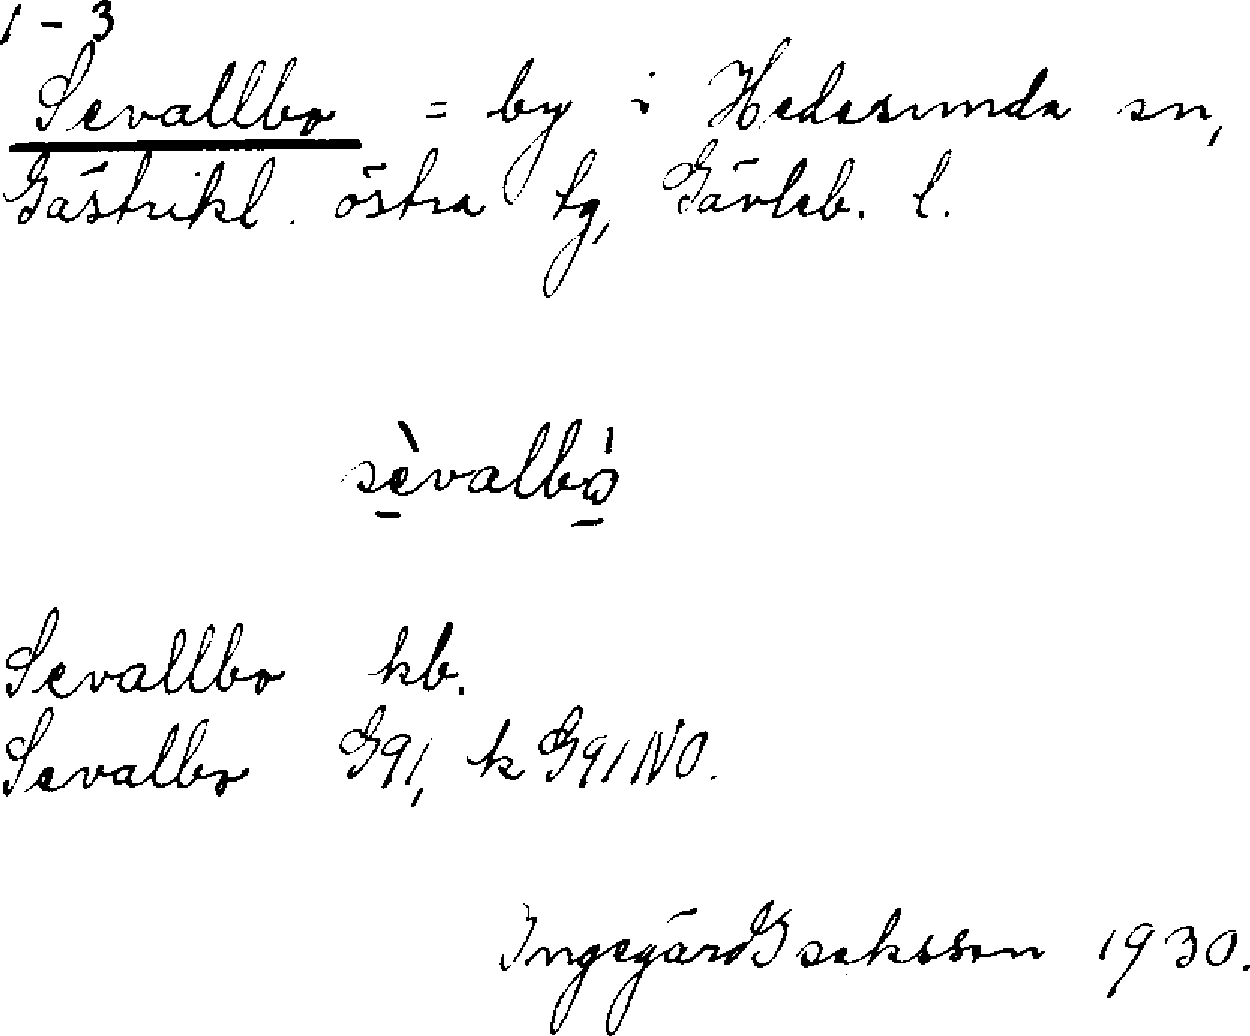 1-3
Sevallbo = by i Hedesunda sn,
Gästrikl. östra tg, Gävleb. l.
sèvalbó
Sevallbo kb.
Sevalbo G91, k G91NO.
Ingegärd Isaksson 1930.